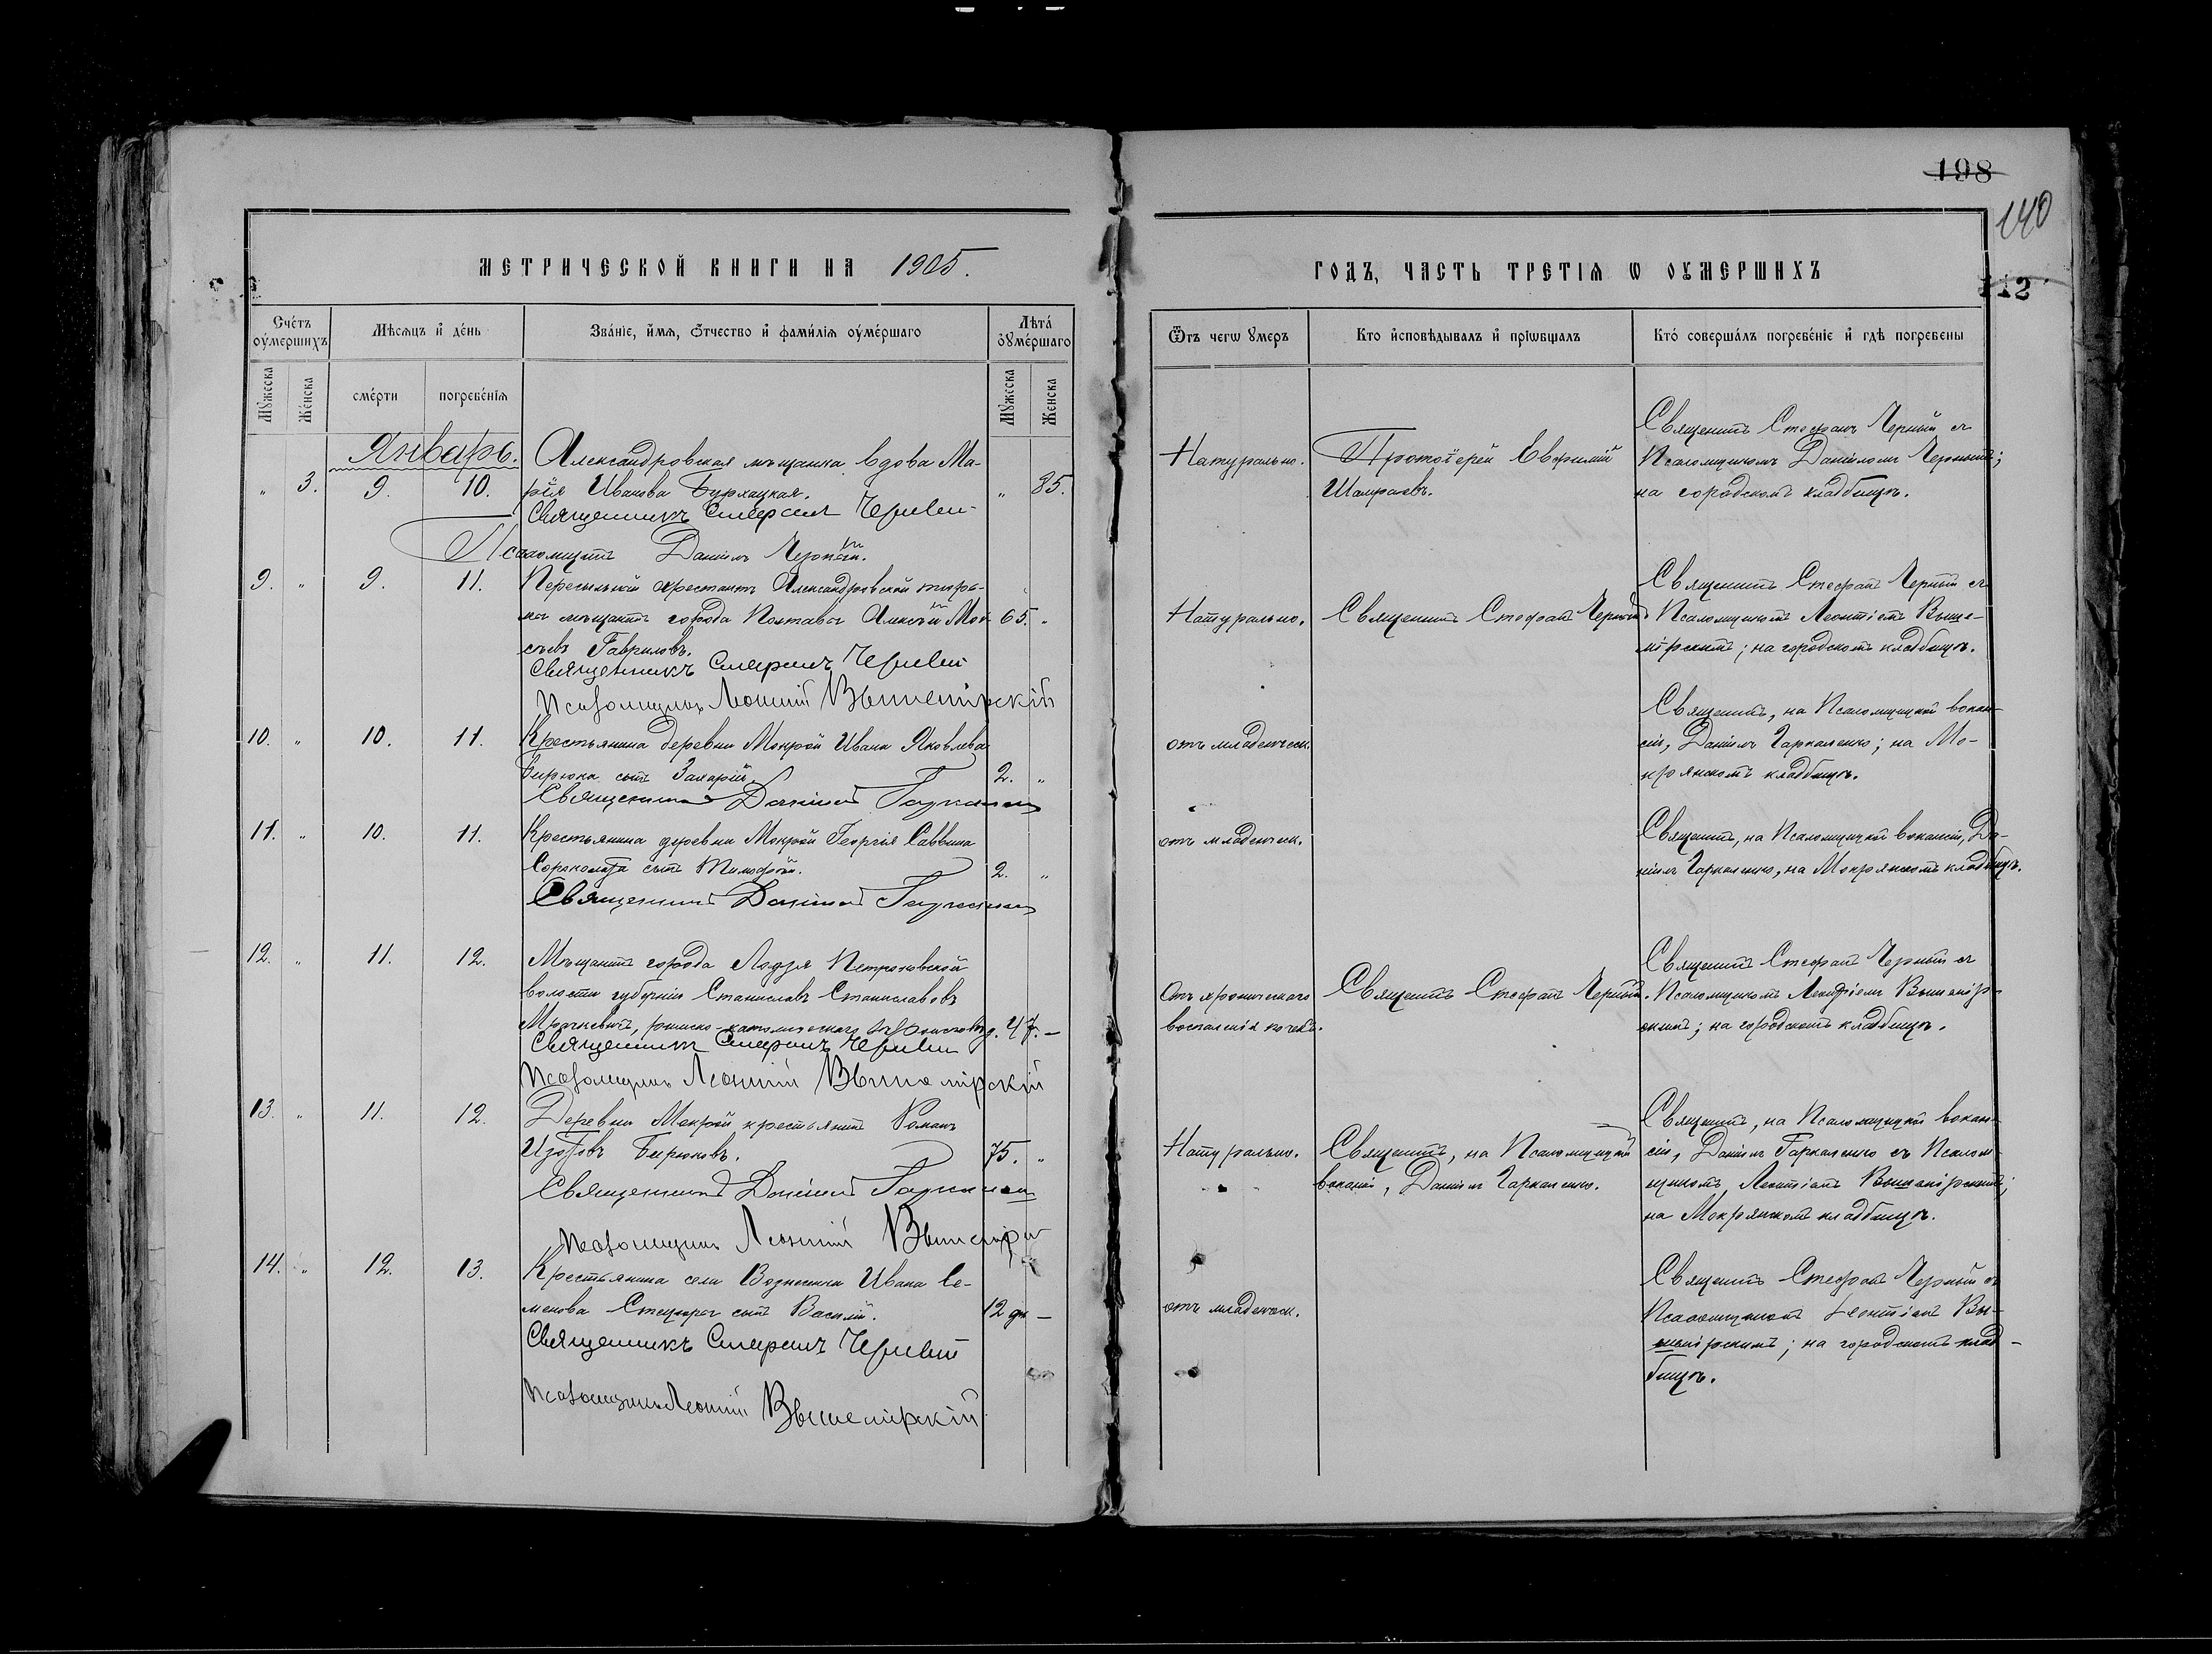 198
140
112
МЕТРИЧЕСКОЙ КНИГИ НА 1905.
ГОДЪ, ЧАСТЬ ТРЕТІЯ Ѡ ОУМЕРШИХЪ
Счетъ оумершихъ
Мѣсяцъ и день
Званіе, имя, отчество и фамилія оумершаго
Лѣта оумершаго
Мужеска
Женска
смерти
погребенія
Мужеска
Женска
Ѿ чегѡ умеръ
Кто исповѣдывалъ и пріѡбщалъ
Кто совершалъ погребеніе и гдѣ погребены
Январь.
„ 3. 9. 10.
Александровская мѣщанка вдова Ма-
рія Иванова Бурлацкая. „ 85.
Священникъ Стефанъ Черный
Псаломщикъ Даніилъ Черный.
Натурально.
Протоіерей Евфимій
Шамраевъ.
Священникъ Стефанъ Черный съ
Псаломщикомъ Даніиломъ Чернымъ;
на городскомъ кладбищѣ.
9. „ 9. 11.
Пересыльный арестантъ Александровской тюрь-
мы мѣщанинъ города Полтавы Алексѣй Мои- 65. „
сѣевъ Гавриловъ.
Священникъ Стефанъ Черный
Псаломщикъ Леонтій Вышемірскій
Натурально.
Священникъ Стефанъ Черный
Священникъ Стефанъ Черный съ
Псаломщикомъ Леонтіемъ Выше-
мірскимъ; на городскомъ кладбищѣ.
10. „ 10. 11.
Крестьянина деревни Мокрой Ивана Яковлева
Бирюка сынъ Захарій. 2. „
Священникъ Даніилъ Гаркаленко
отъ младенческ.
Священникъ, на Псаломщицкой вакан-
сіи, Даніилъ Гаркаленко; на Мо-
крянскомъ кладбищѣ.
11. „ 10. 11.
Крестьянина деревни Мокрой Георгія Саввина
сынъ Тимофей. 2. „
Священникъ Даніилъ Гаркаленко
отъ младенческ.
Священникъ, на Псаломщицкой вакансіи, Да-
ніилъ Гаркаленко, на Мокрянскомъ кладбищѣ.
12. „ 11. 12.
Мѣщанинъ города Лодзя Петроковской
волости губерніи Станиславъ Станиславовъ
римско-католическаго 47. –
Священникъ Стефанъ Черный
Псаломщикъ Леонтій Вышемірскій
Отъ хроническаго
воспаленія почекъ.
Священникъ Стефанъ Черный.
Священникъ Стефанъ Черный съ
Псаломщикомъ Леонтіемъ Вышемір-
скимъ; на городскомъ кладбищѣ.
13. „ 11. 12.
Деревни Мокрой крестьянинъ Романъ
Изотовъ Бирюковъ. 75. „
Священникъ Даніилъ Гаркаленко
Псаломщикъ Леонтій Вышемірскій
Натурально.
Священникъ, на Псаломщицкой
вакансіи, Даніилъ Гаркаленко.
Священникъ, на Псаломщицкой вакан-
сіи, Даніилъ Гаркаленко съ Псалом-
щикомъ Леонтіемъ Вышемірскимъ;
на Мокрянскомъ кладбищѣ.
14. „ 12. 13.
Крестьянина села Вознесенки Ивана Се-
менова Стецюры сынъ Василій. 12 дн –
Священникъ Стефанъ Черный
Псаломщикъ Леонтій Вышемірскій
отъ младенческ.
Священникъ Стефанъ Черный съ
Псаломщикомъ Леонтіемъ Вы-
шемірскимъ; на городскомъ клад-
бищѣ.